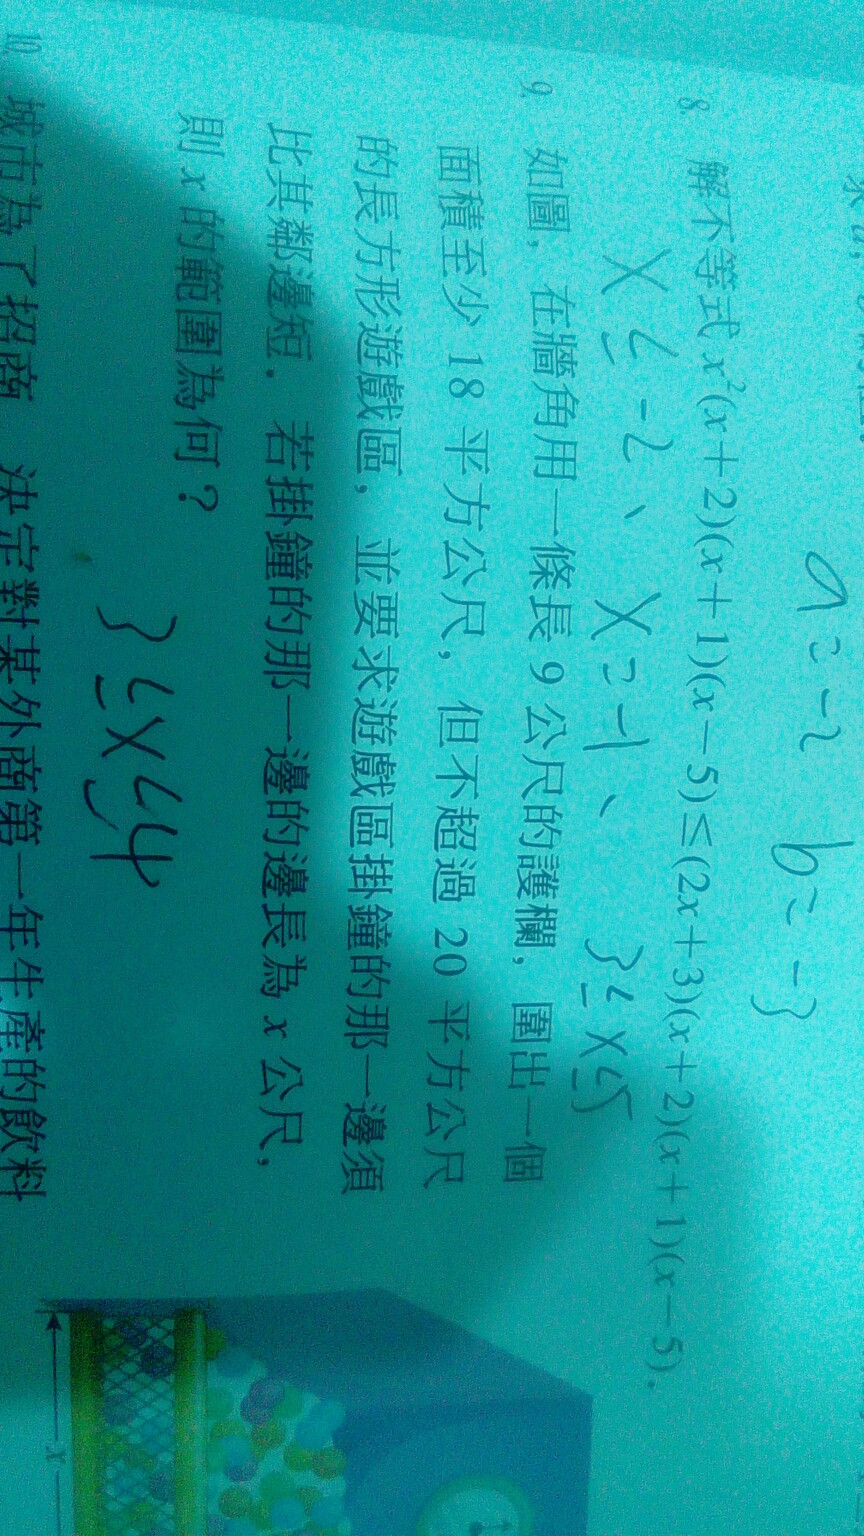 a = -2 b = -3
8. 解不等式 x²(x+2)(x+1)(x-5)≤(2x+3)(x+2)(x+1)(x-5).
x ≤ -2、x = -1、3 ≤ x ≤ 5
9. 如圖，在牆角用一條長 9 公尺的護欄，圍出一個
面積至少 18 平方公尺，但不超過 20 平方公尺
的長方形遊戲區，並要求遊戲區掛鐘的那一邊須
比其鄰邊短．若掛鐘的那一邊的邊長為 x 公尺，
則 x 的範圍為何？
3 ≤ x ≤ 4
10. 城市為了招商 決定對某外商第一年生產的飲料
x